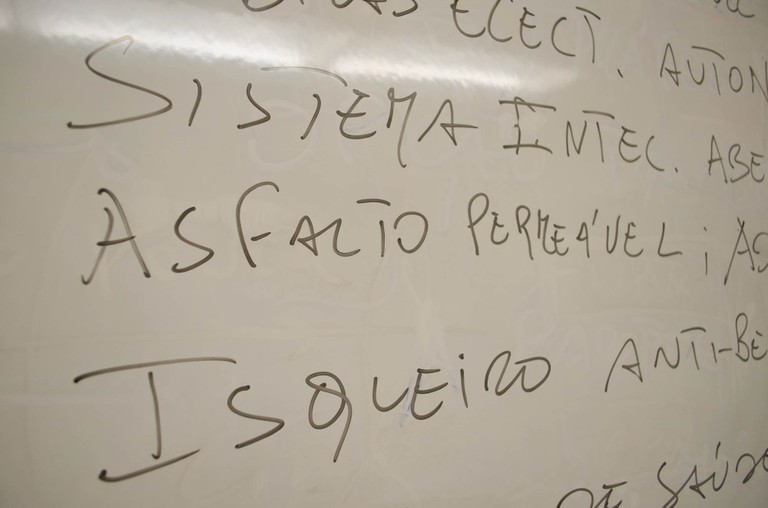 ELECT. AUTON
SISTEMA INTEL. ABE
ASFALTO PERMEÁVEL; AS
ISQUEIRO ANTI-BÊ
DE SAÚDE